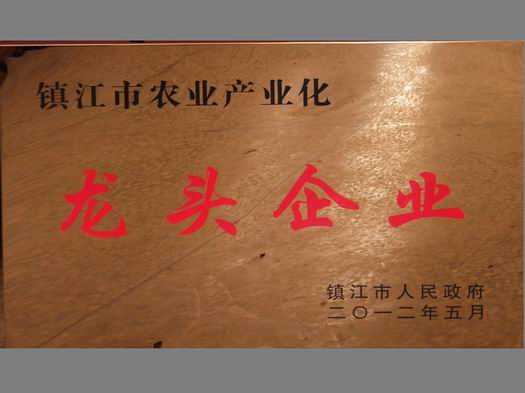 镇江市农业产业化
龙头企业
镇江市人民政府
二〇一二年五月